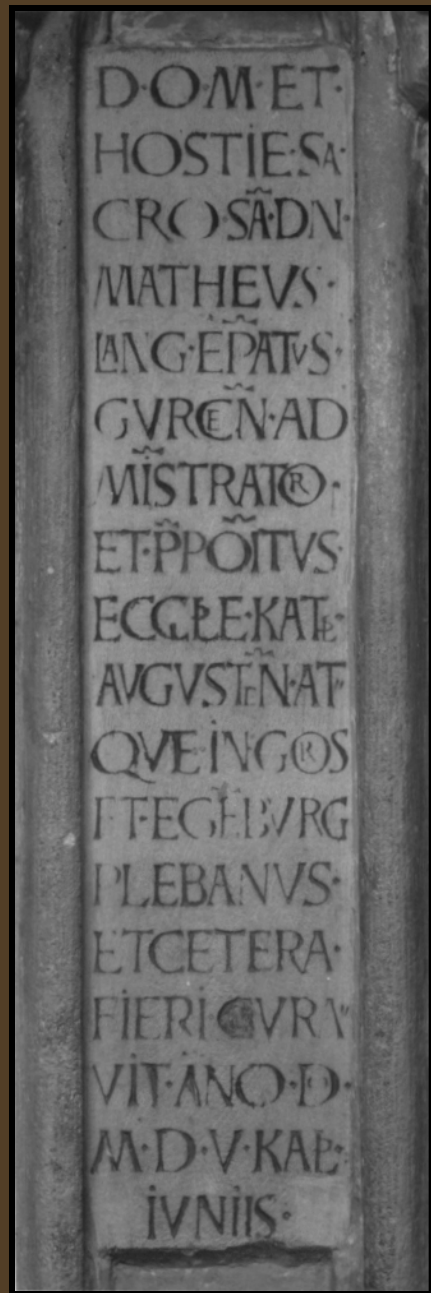 D·O·M·ET·
HOSTIE·SA·
CRO·SÃ·DN·
MATHEVS·
LANG·EP̃ATVS·
GVRCEÑ·AD
MĨSTRATOR·
ET·P̃PÕITVS·
ECCLE·KATL·
AVGVSTEÑ·AT
QVE·IN·GROS
ET·EGELBVRG
PLEBANVS·
ETCETERA·
FIERI CVRA
VIT·ANO·D·
M·D·V·KAL·
IVNIIS·